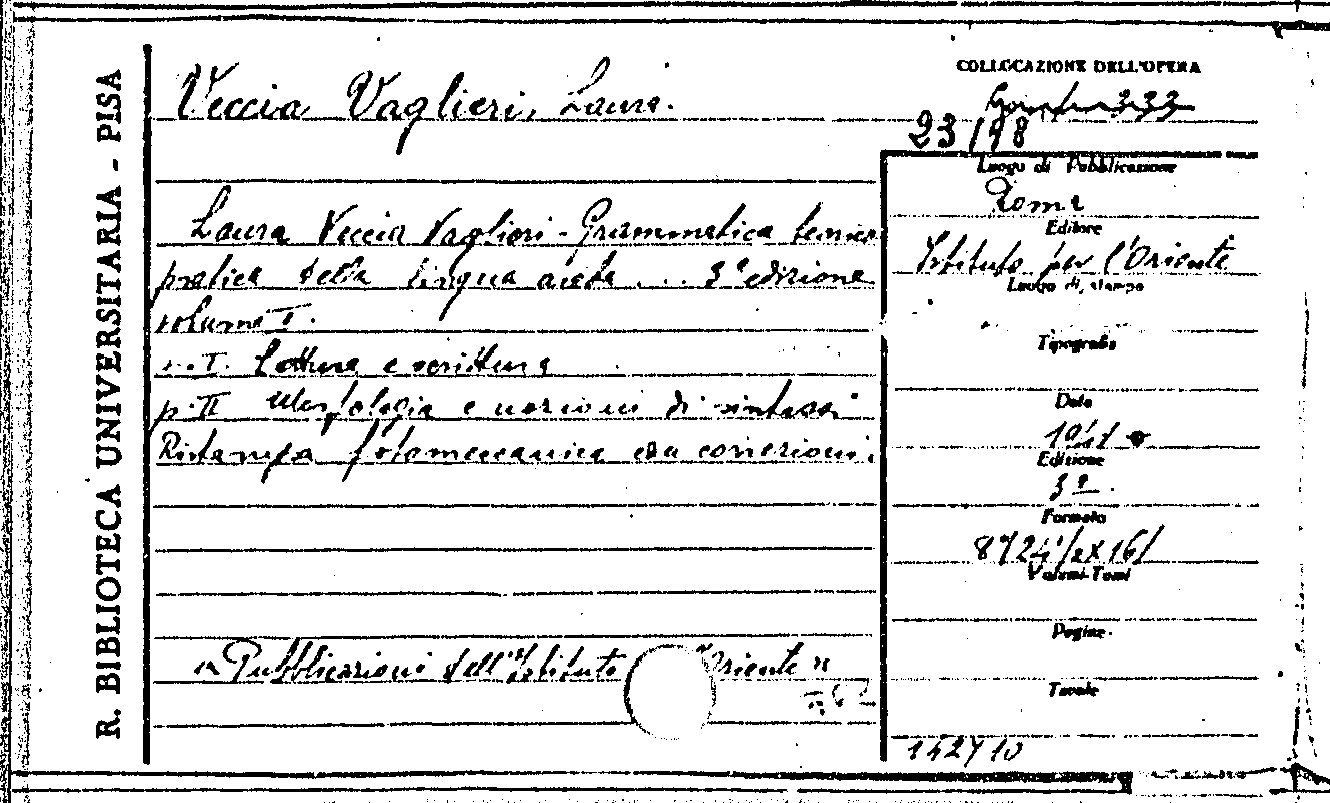 R. BIBLIOTECA UNIVERSITARIA - PISA
Veccia Vaglieri, Laura.
COLLOCAZIONE DELL'OPERA
23/98
Luogo di Pubblicazione
Roma
Editore
Istituto per l'Oriente
Luogo di stampa
Tipografia
Data
Edizione
3ª.
Formato
Volumi-Tomi
Pagine
Tavole
Laura Veccia Vaglieri - Grammatica
pratica della lingua araba ... 3ª edizione
volume I.
p. I. Letture e scrittura
p. II Morfologia e nozioni di sintassi
Ristampa fotomeccanica con correzioni.
"Pubblicazioni dell'Istituto Oriente"